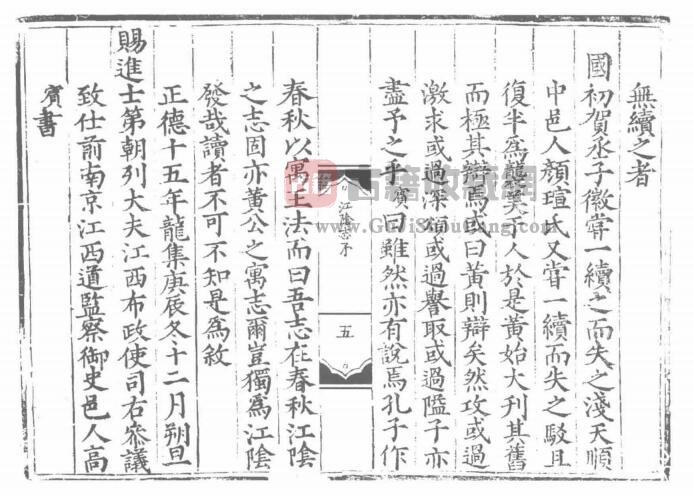 無續之者
國初賀丞子徽嘗一續之而失之淺天順
中邑人顏瑄氏又嘗一續而失之駁且
復半爲人於是黃始大刊其舊
而極其辯焉或曰黃則辯矣然攻或過
激求或過深頌或過譽取或過隘子亦
盡予之乎賓曰雖然亦有說焉孔子作
江陰志
五
春秋以寓王法而曰吾志在春秋江陰
之志固亦黃公之寓志爾豈獨爲江陰
發哉讀者不可不知是爲敘
正德十五年龍集庚辰冬十二月朔旦
賜進士第朝列大夫江西布政使司右參議
致仕前南京江西道監察御史邑人高
賓書
古籍收藏網
www.GuJiShouCang.com